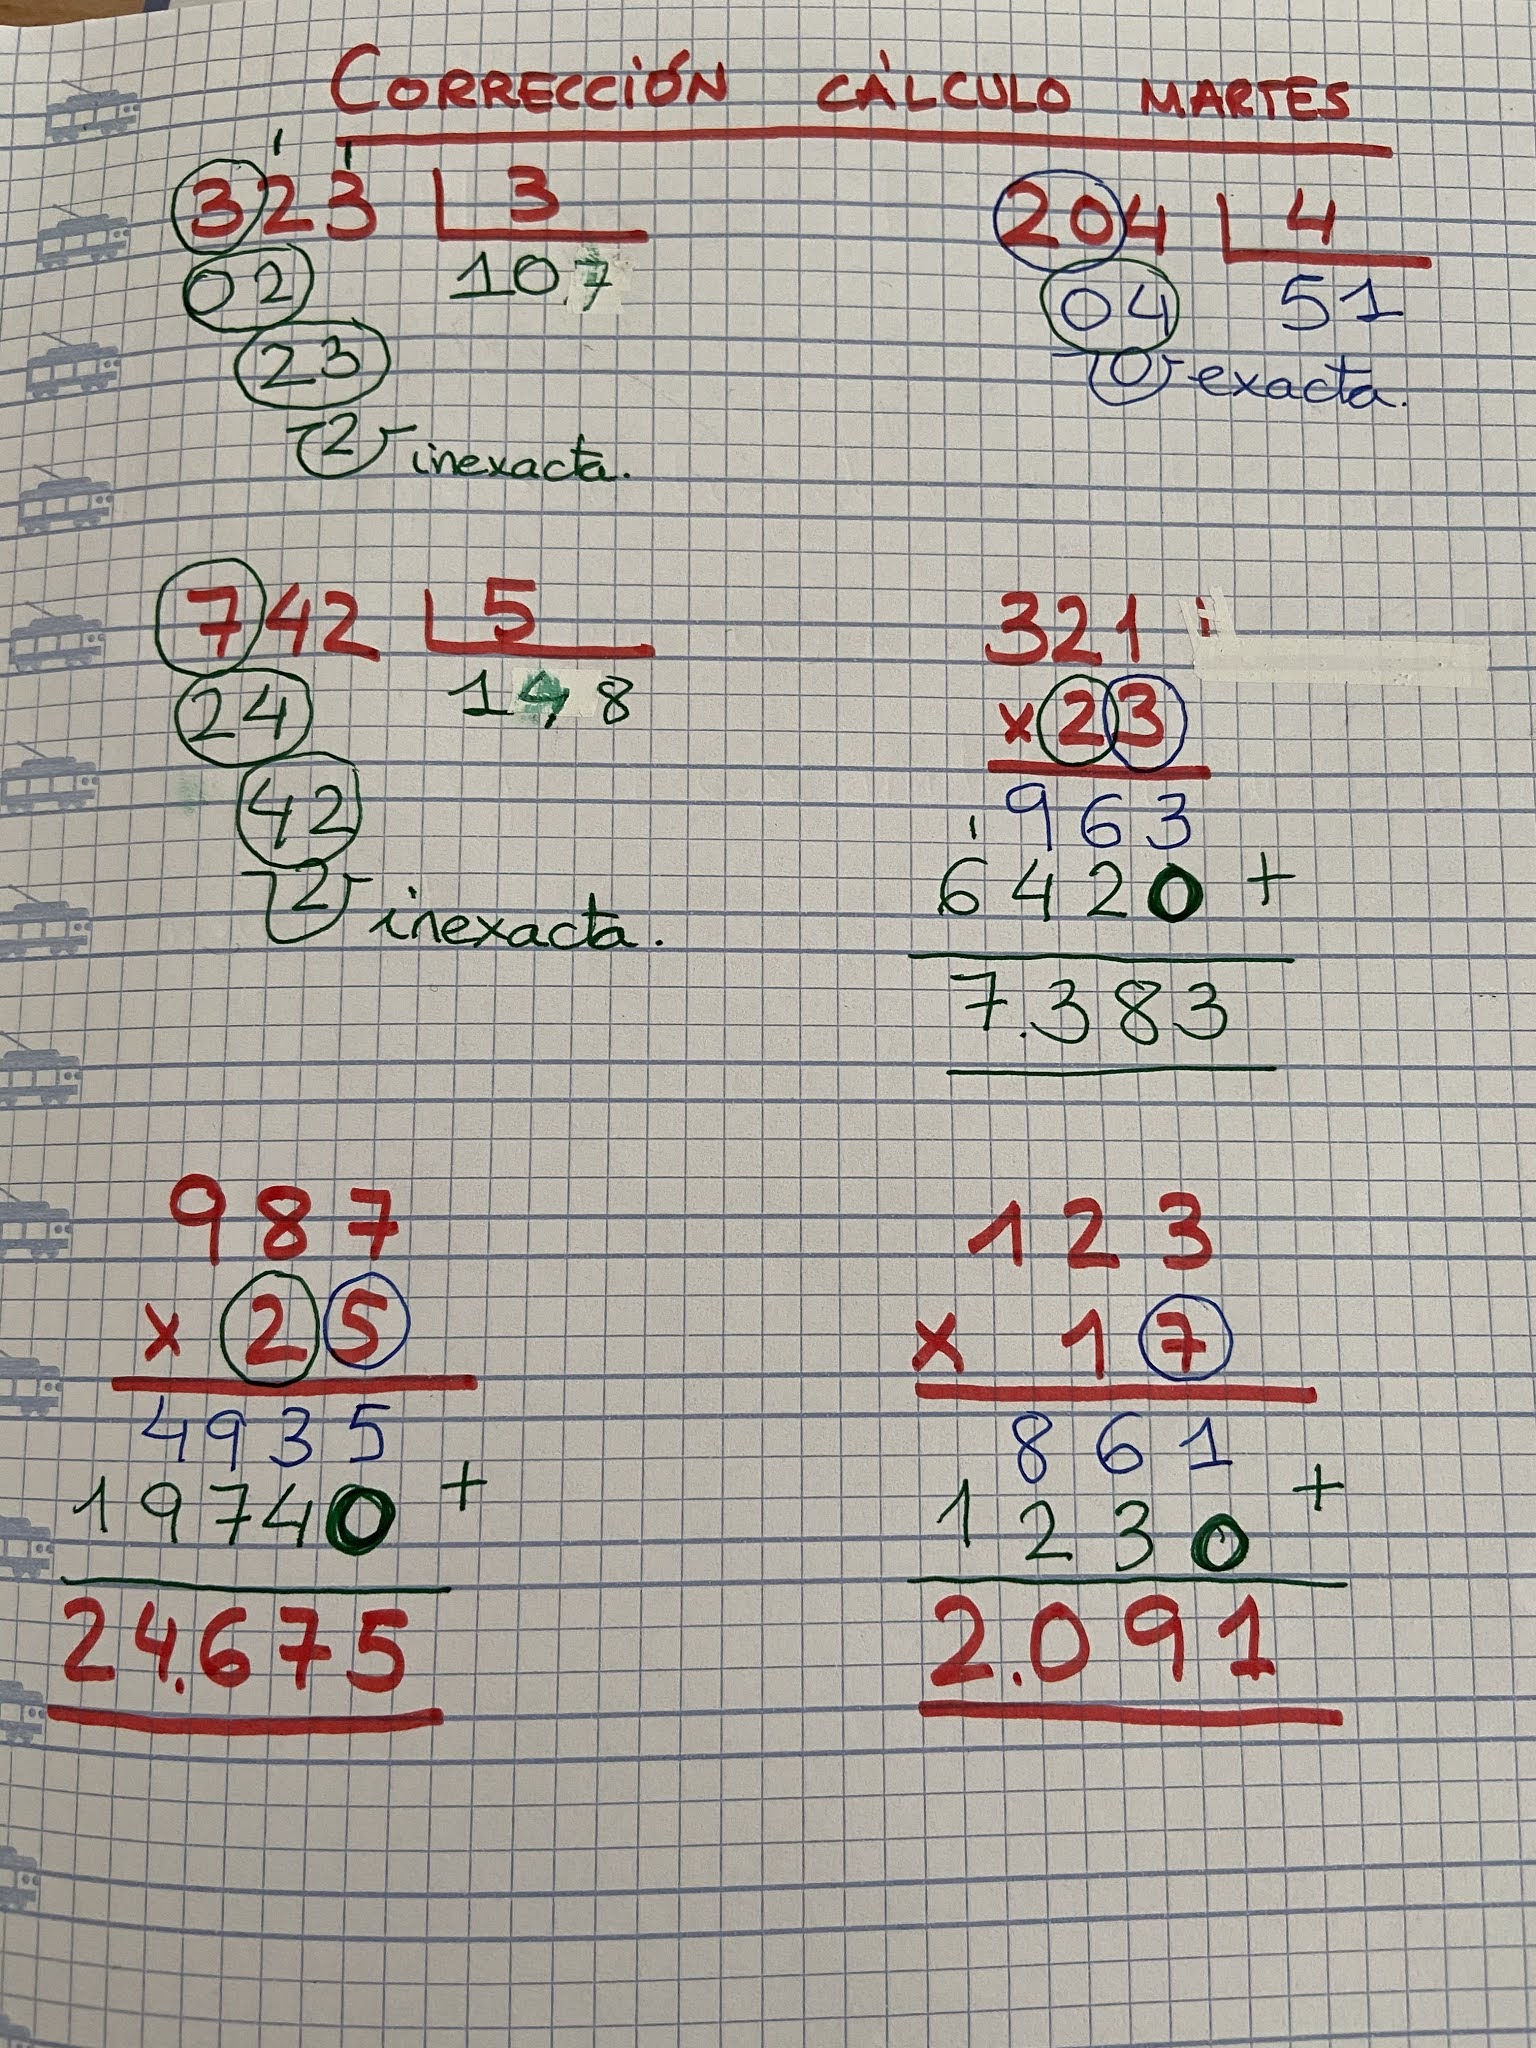 CORRECCIÓN CÁLCULO MARTES
323 3
02 107
23
2 inexacta.
204 4
04 51
0 exacta.
742 5
24 148
42
2 inexacta.
321
x 23
963
6420 +
7.383
987
x 25
4935
19740 +
24.675
123
x 17
861
1230 +
2.091